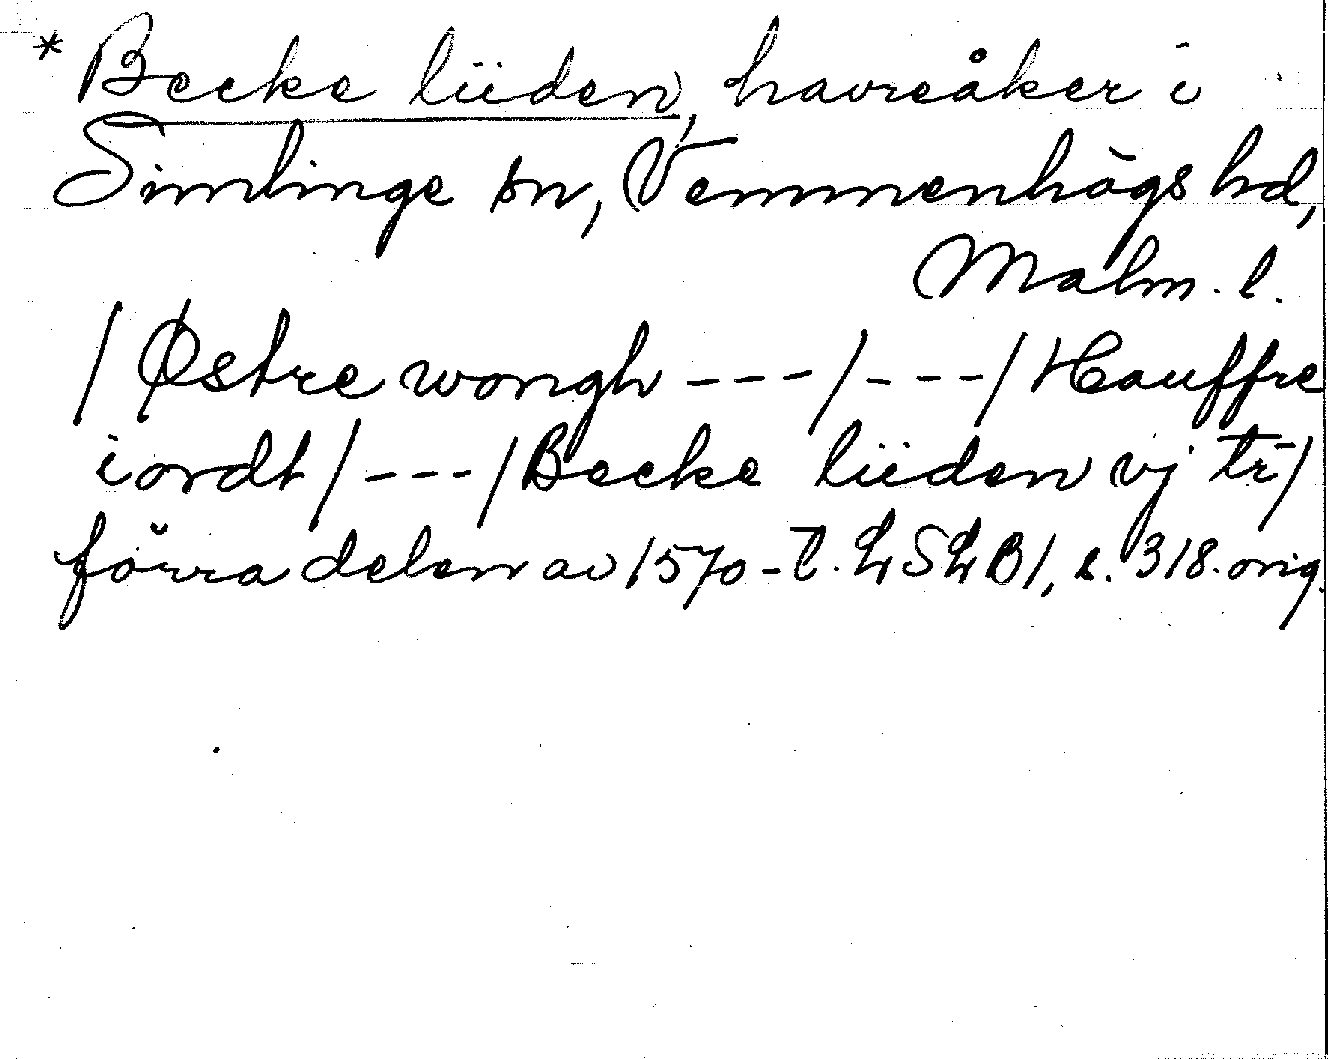 * Becke lüden, havreåker i
Simlinge sn, Vemmenhögs hd,
Malm. l.
/ Østre wongh ---/---/ Hauffre
iordt /---/ Becke lüden vj tr̄ /
förra delen av 1570-t. LSLB1, s. 318. orig.